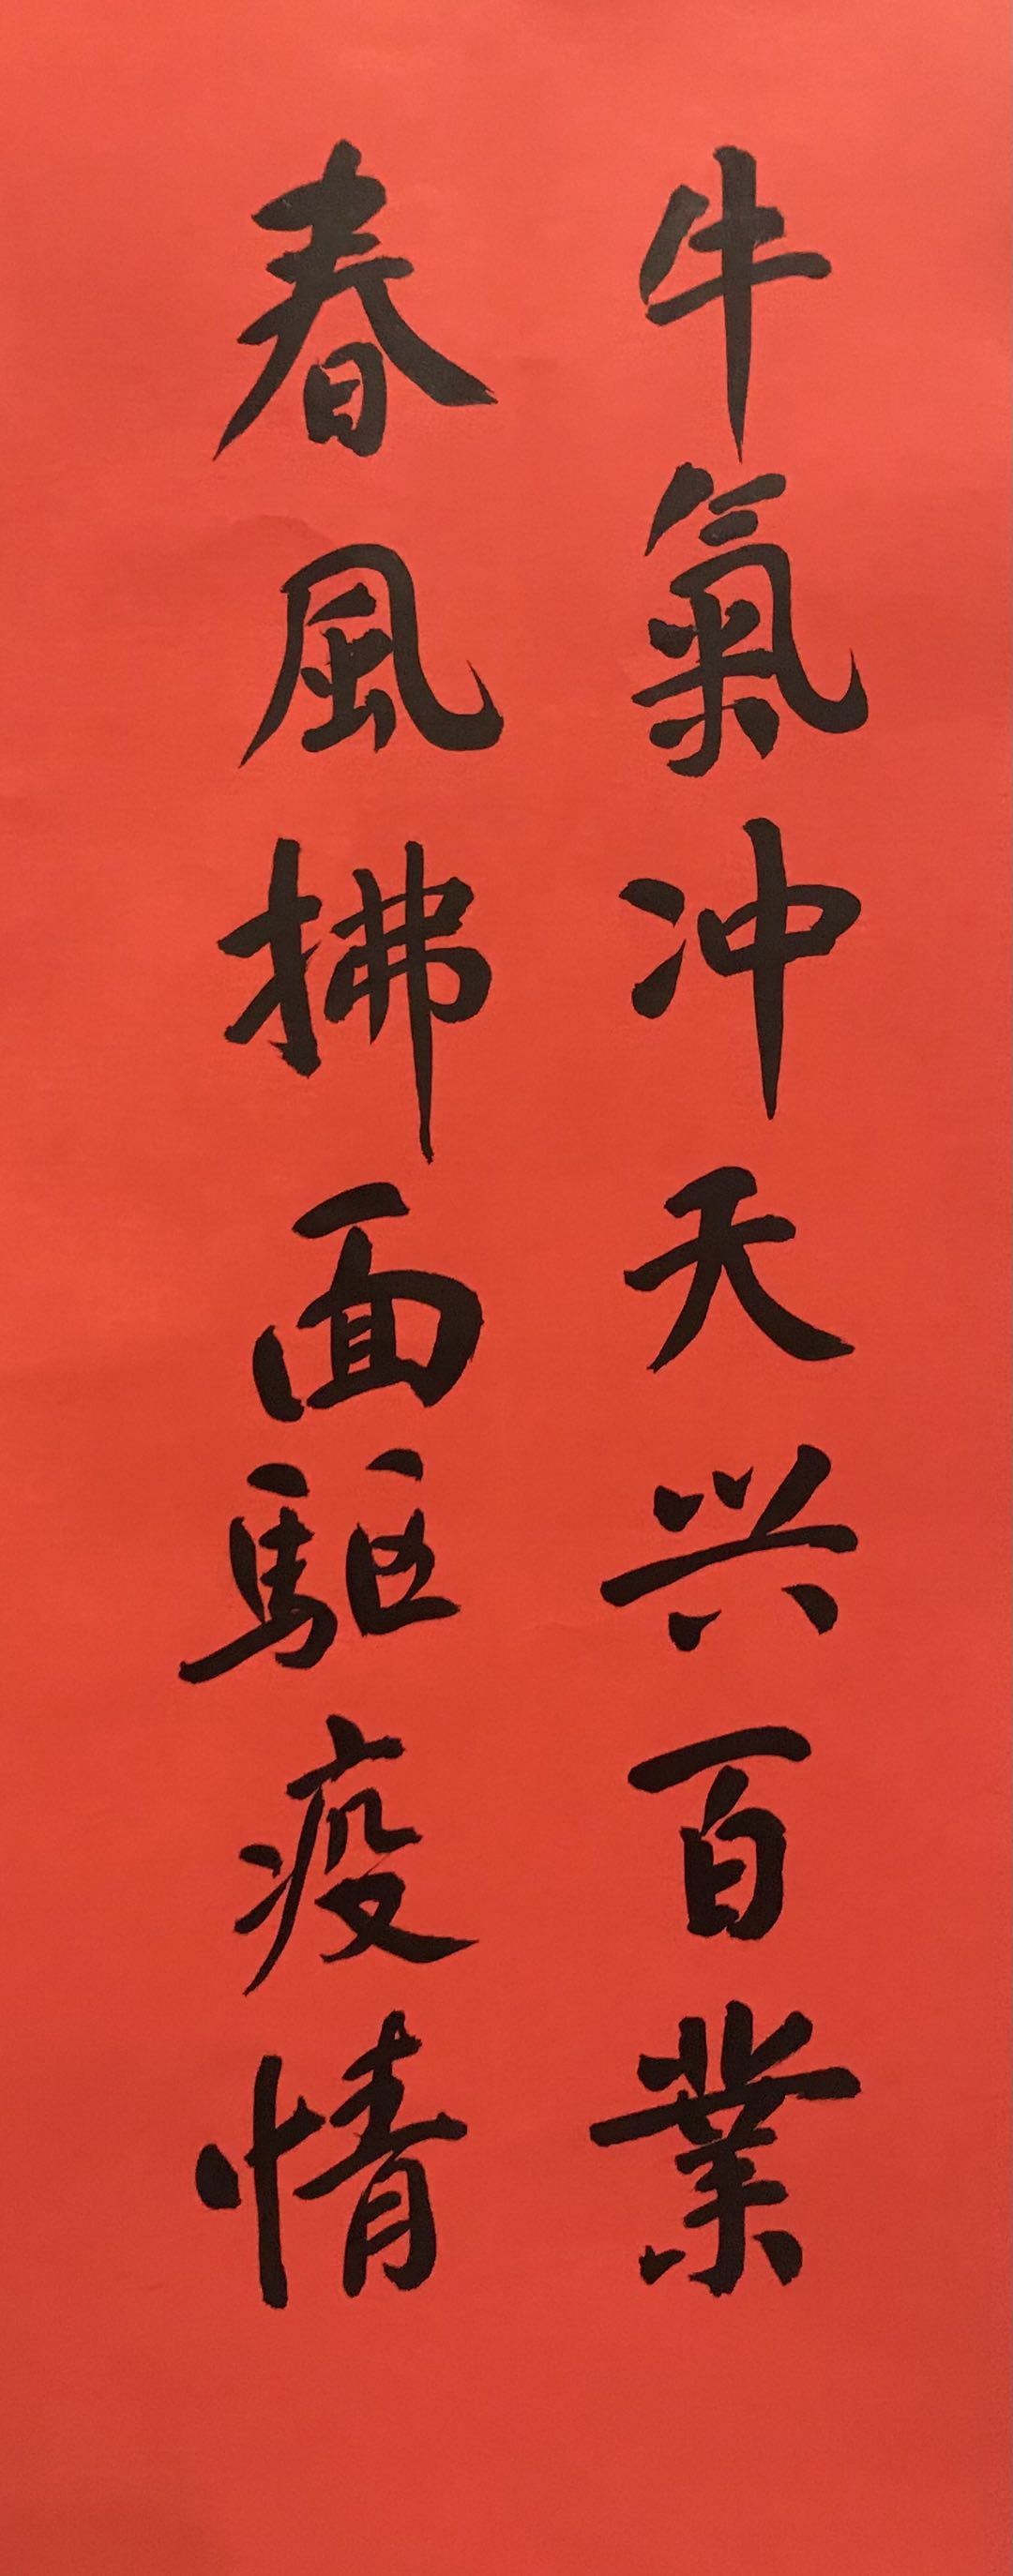 牛氣冲天兴百業
春風拂面駆疫情